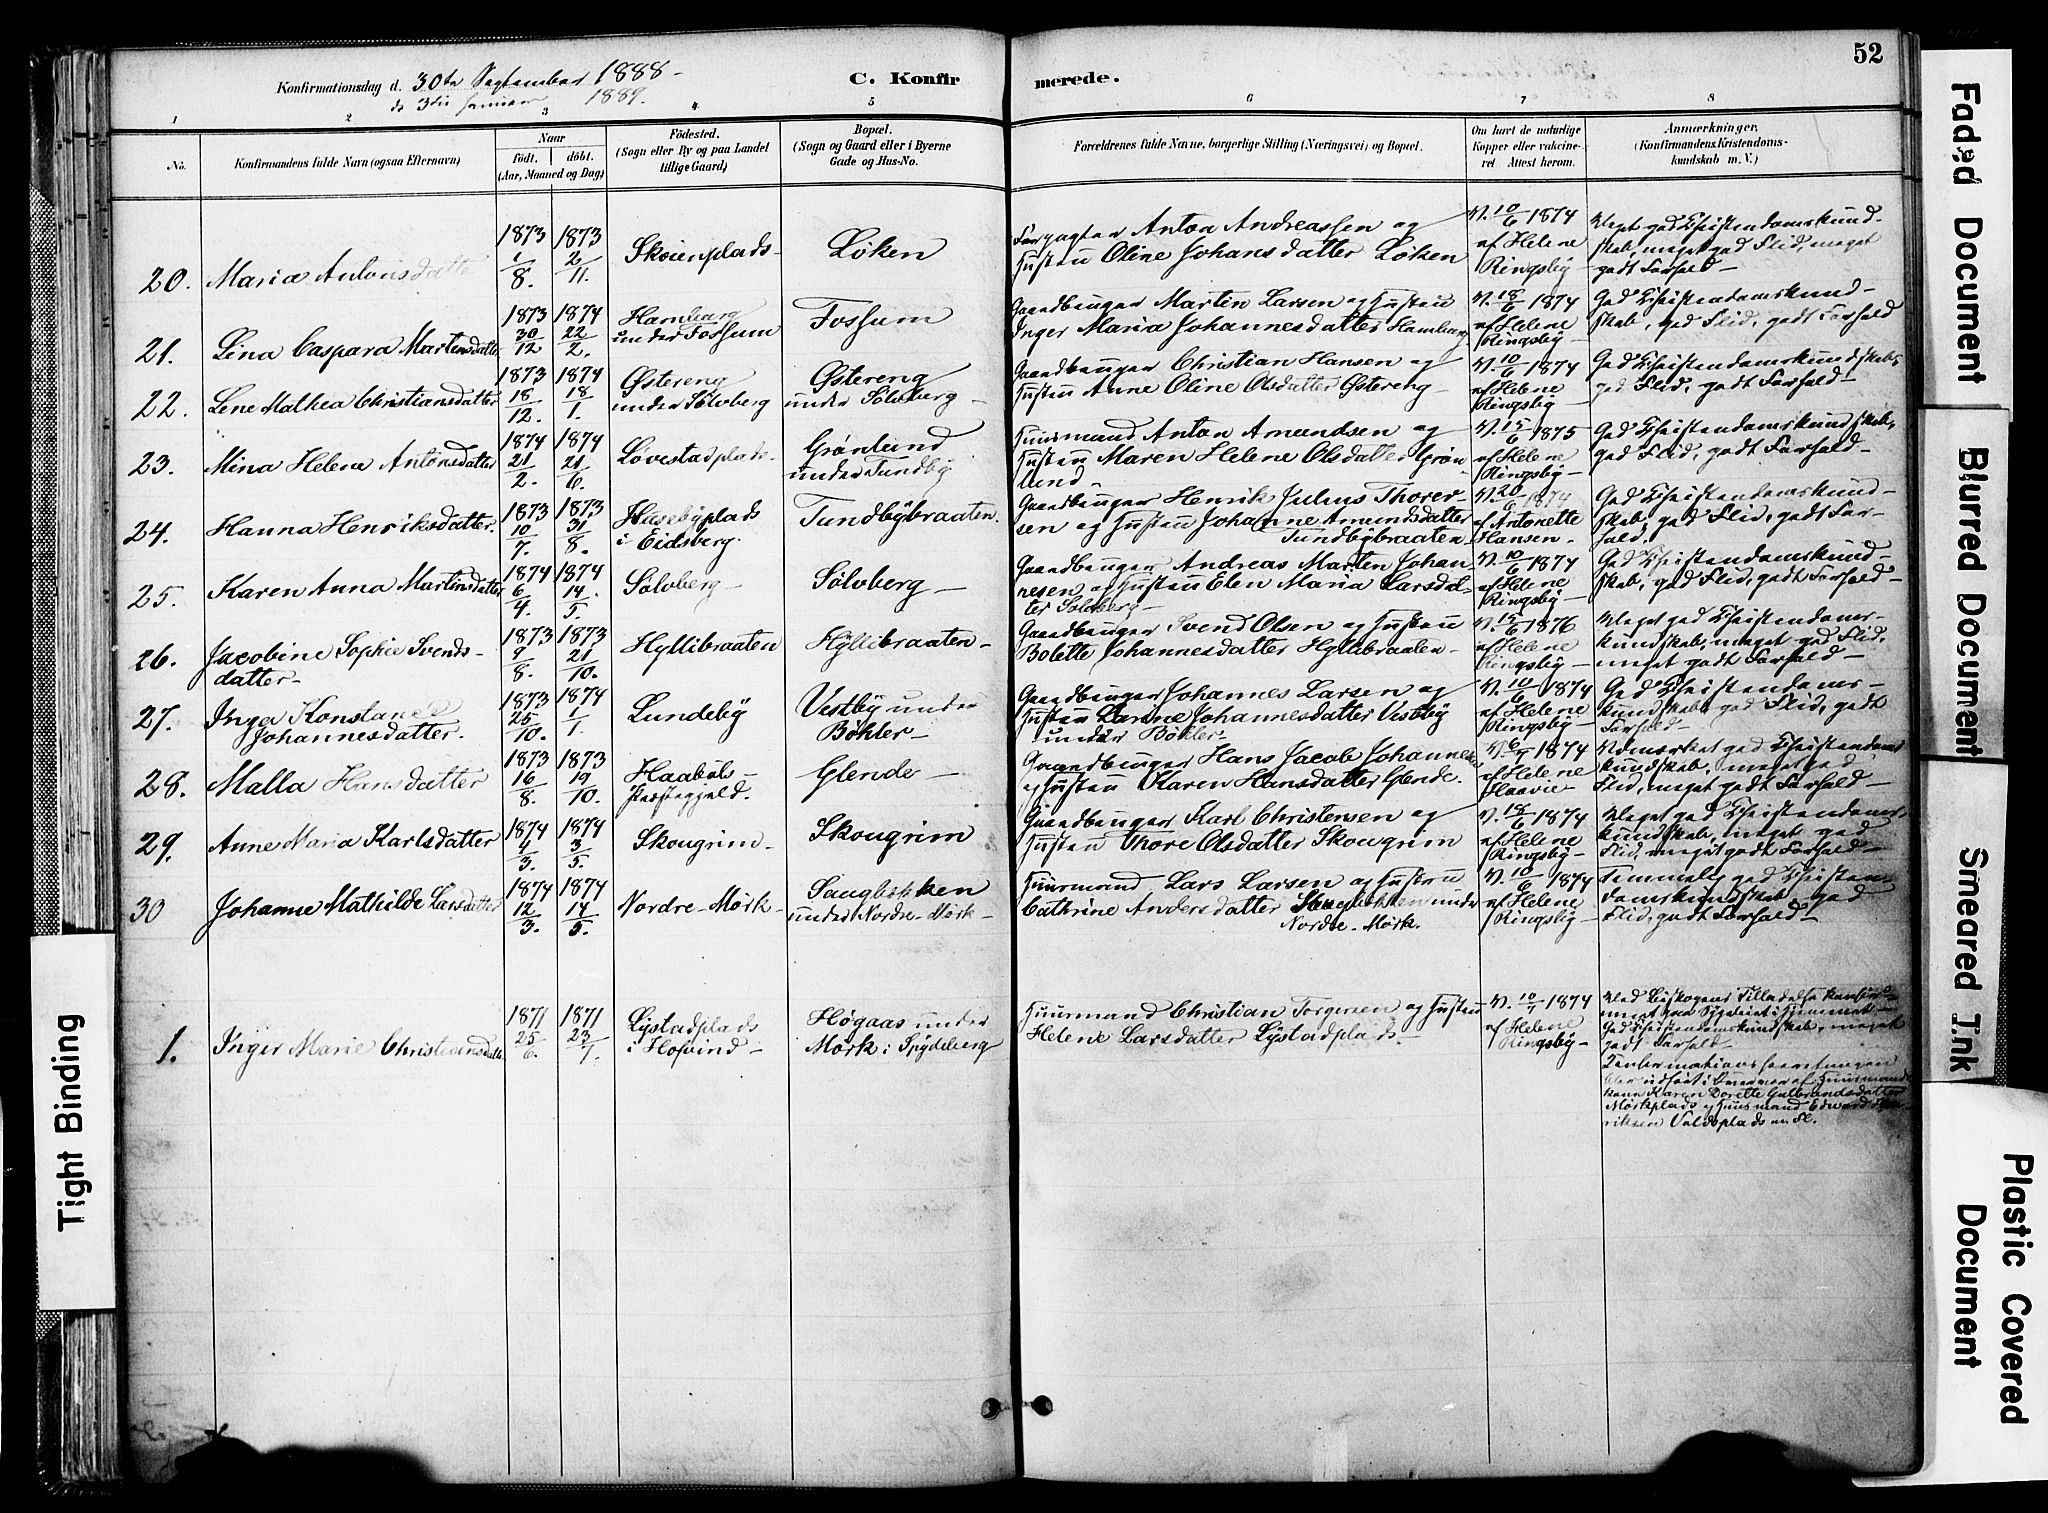 52
Konfirmationsdag d. 30te September 1888-
C. Konfirmerede.
do 3die Januar 1889.
1 2 3 4 5 6 7 8
No.
Konfirmandens fulde Navn (ogsaa Efternavn)
Naar
födt. döbt.
(Aar, Maaned og Dag)
Födested.
(Sogn eller By og paa Landet
tillige Gaard)
Bopæl.
(Sogn og Gaard eller i Byerne
Gade og Hus-No.
Forældrenes fulde Navne, borgerlige Stilling (Næringsvei) og Bopæl.
Om havt de naturlige
Kopper eller vakcineret
Attest herom.
Anmærkninger.
(Konfirmandens Kristendomskundskab
m. V.)
20. Maria Antonsdatter
1873 1/8. 1873 2/11.
Skoienplads-
Løken
Forpagter Anton Andreassen og
Hustru Oline Johansdatter Løken
V. 10/6 1874
af Helene
Ringsby-
Meget god Christendomskundskab,
meget god Flid, meget
godt Forhold-
21. Lina Caspara Martinsdatter
1873 30/12 1874 22/2.
Hamborg
under Fossum
Fossum
Gaardbruger Martin Larsen og Hustru
Inger Maria Johannesdatter Hamborg
V. 18/6 1874
af Helene
Ringsby-
God Christendomskundskab,
god Flid, godt Forhold
22. Lene Mathea Christiansdatter
1873 18/12. 1874 18/1.
Østereng
under Sölvberg
Østereng
under Sölvberg-
Gaardbruger Christian Hansen og
Hustru Anne Oline Olsdatter Østereng-
V. 10/6 1874
af Helene
Ringsby-
God Christendomskundskab,
god Flid, godt Forhold-
23. Mina Helene Antonsdatter
1874 21/2. 1874 21/6.
Lövestadplads-
Grønlund
under Tundby
Huusmand Anton Amundsen og
Hustru Maren Helene Olsdatter Grønlund-
V. 15/6 1875
af Helene
Ringsby-
God Christendomskundskab,
god Flid, godt Forhold-
24. Hanna Henriksdatter.
1873 10/7. 1873 31/8.
Husebyplads
i Eidsberg.
Tundbybraaten.
Gaardbruger Henrik Julius Thoresen
og Hustru Johanne Amundsdatter
Tundbybraaten
V. 20/6 1874
af Antonette
Hansen-
God Christendomskundskab,
god Flid, godt Forhold.
25. Karen Anna Martinsdatter
1874 6/4. 1874 14/5.
Sölvberg-
Sölvberg-
Gaardbruger Andreas Martin Johannesen
og Hustru Elen Maria Larsdatter
Sölvberg-
V. 10/6 1874
af Helene
Ringsby-
God Christendomskundskab,
god Flid, godt Forhold-
26. Jacobine Sophie Svendsdatter-
1873 9/8. 1873 21/10.
Hyllibraaten
Hyllibraaten-
Gaardbruger Svend Olsen og Hustru
Bolette Johannesdatter Hyllibraaten-
V. 15/6 1876
af Helene
Ringsby-
Meget god Christendomskundskab,
meget god Flid,
meget godt Forhold-
27. Inga Konstance
Johannesdatter.
1873 25/10. 1874 1/1.
Lundeby
Vestby under
Böhler-
Gaardbruger Johannes Larsen og
Hustru Larine Johannesdatter Vestby
under Böhler-
V. 10/6 1874
af Helene
Ringsby-
God Christendomskundskab,
god Flid, godt
Forhold-
28. Malla Hansdatter
1873 16/8. 1873 19/10.
Haaböls-
Præstegjeld.
Glende-
Gaardbruger Hans Jacob Johannesen
og Hustru Karen Hansdatter Glende.
1874
af Helene
Haavie-
Udmærket god Christendomskundskab,
meget god
Flid, meget godt Forhold-
29. Anne Maria Karlsdatter
1874 4/3. 1874 3/5.
Skougrim-
Skougrim
Gaardbruger Karl Christensen og
Hustru Thore Olsdatter Skougrim
V. 18/6 1874
af Helene
Ringsby-
Meget god Christendomskundskab,
meget god
Flid, meget godt Forhold-
30 Johanne Mathilde Larsdatter
1874 12/3. 1874 14/5.
Nordre-Mørk-
Saugløkken
under Nordre-Mørk-
Huusmand Lars Larsen og Hustru
Cathrine Andersdatter Saugløkken under
Nordre-Mørk.
V. 10/6 1874
af Helene
Ringsby-
Temmelig god Christendomskundskab,
god
Flid, godt Forhold-
1. Inger Marie Christiansdatter
1871 25/6. 1871 23/7.
Lystadplads
i Hofvind-
Høgaas under
Mørk i Spydeberg
Huusmand Christian Torgersen og Hustru
Helene Larsdatter Lystadplads-
V. 10/7 1874
af Helene
Ringsby-
Med Biskopens Tilladelse konfirmeret
paa Sygeleiet i Hjemmet-
God Christendomskundskab, meget
godt Forhold.
Konfirmationsforretningen
blev udført i Nærvær af Huusmandskone
Karen Dorette Gulbrandsdatter
Mørkplads og Huusmand Edward Henriksen
Voldsplads m. Fl.
Tight Binding
Faded Document
Blurred Document
Smeared Ink
Plastic Covered
Document